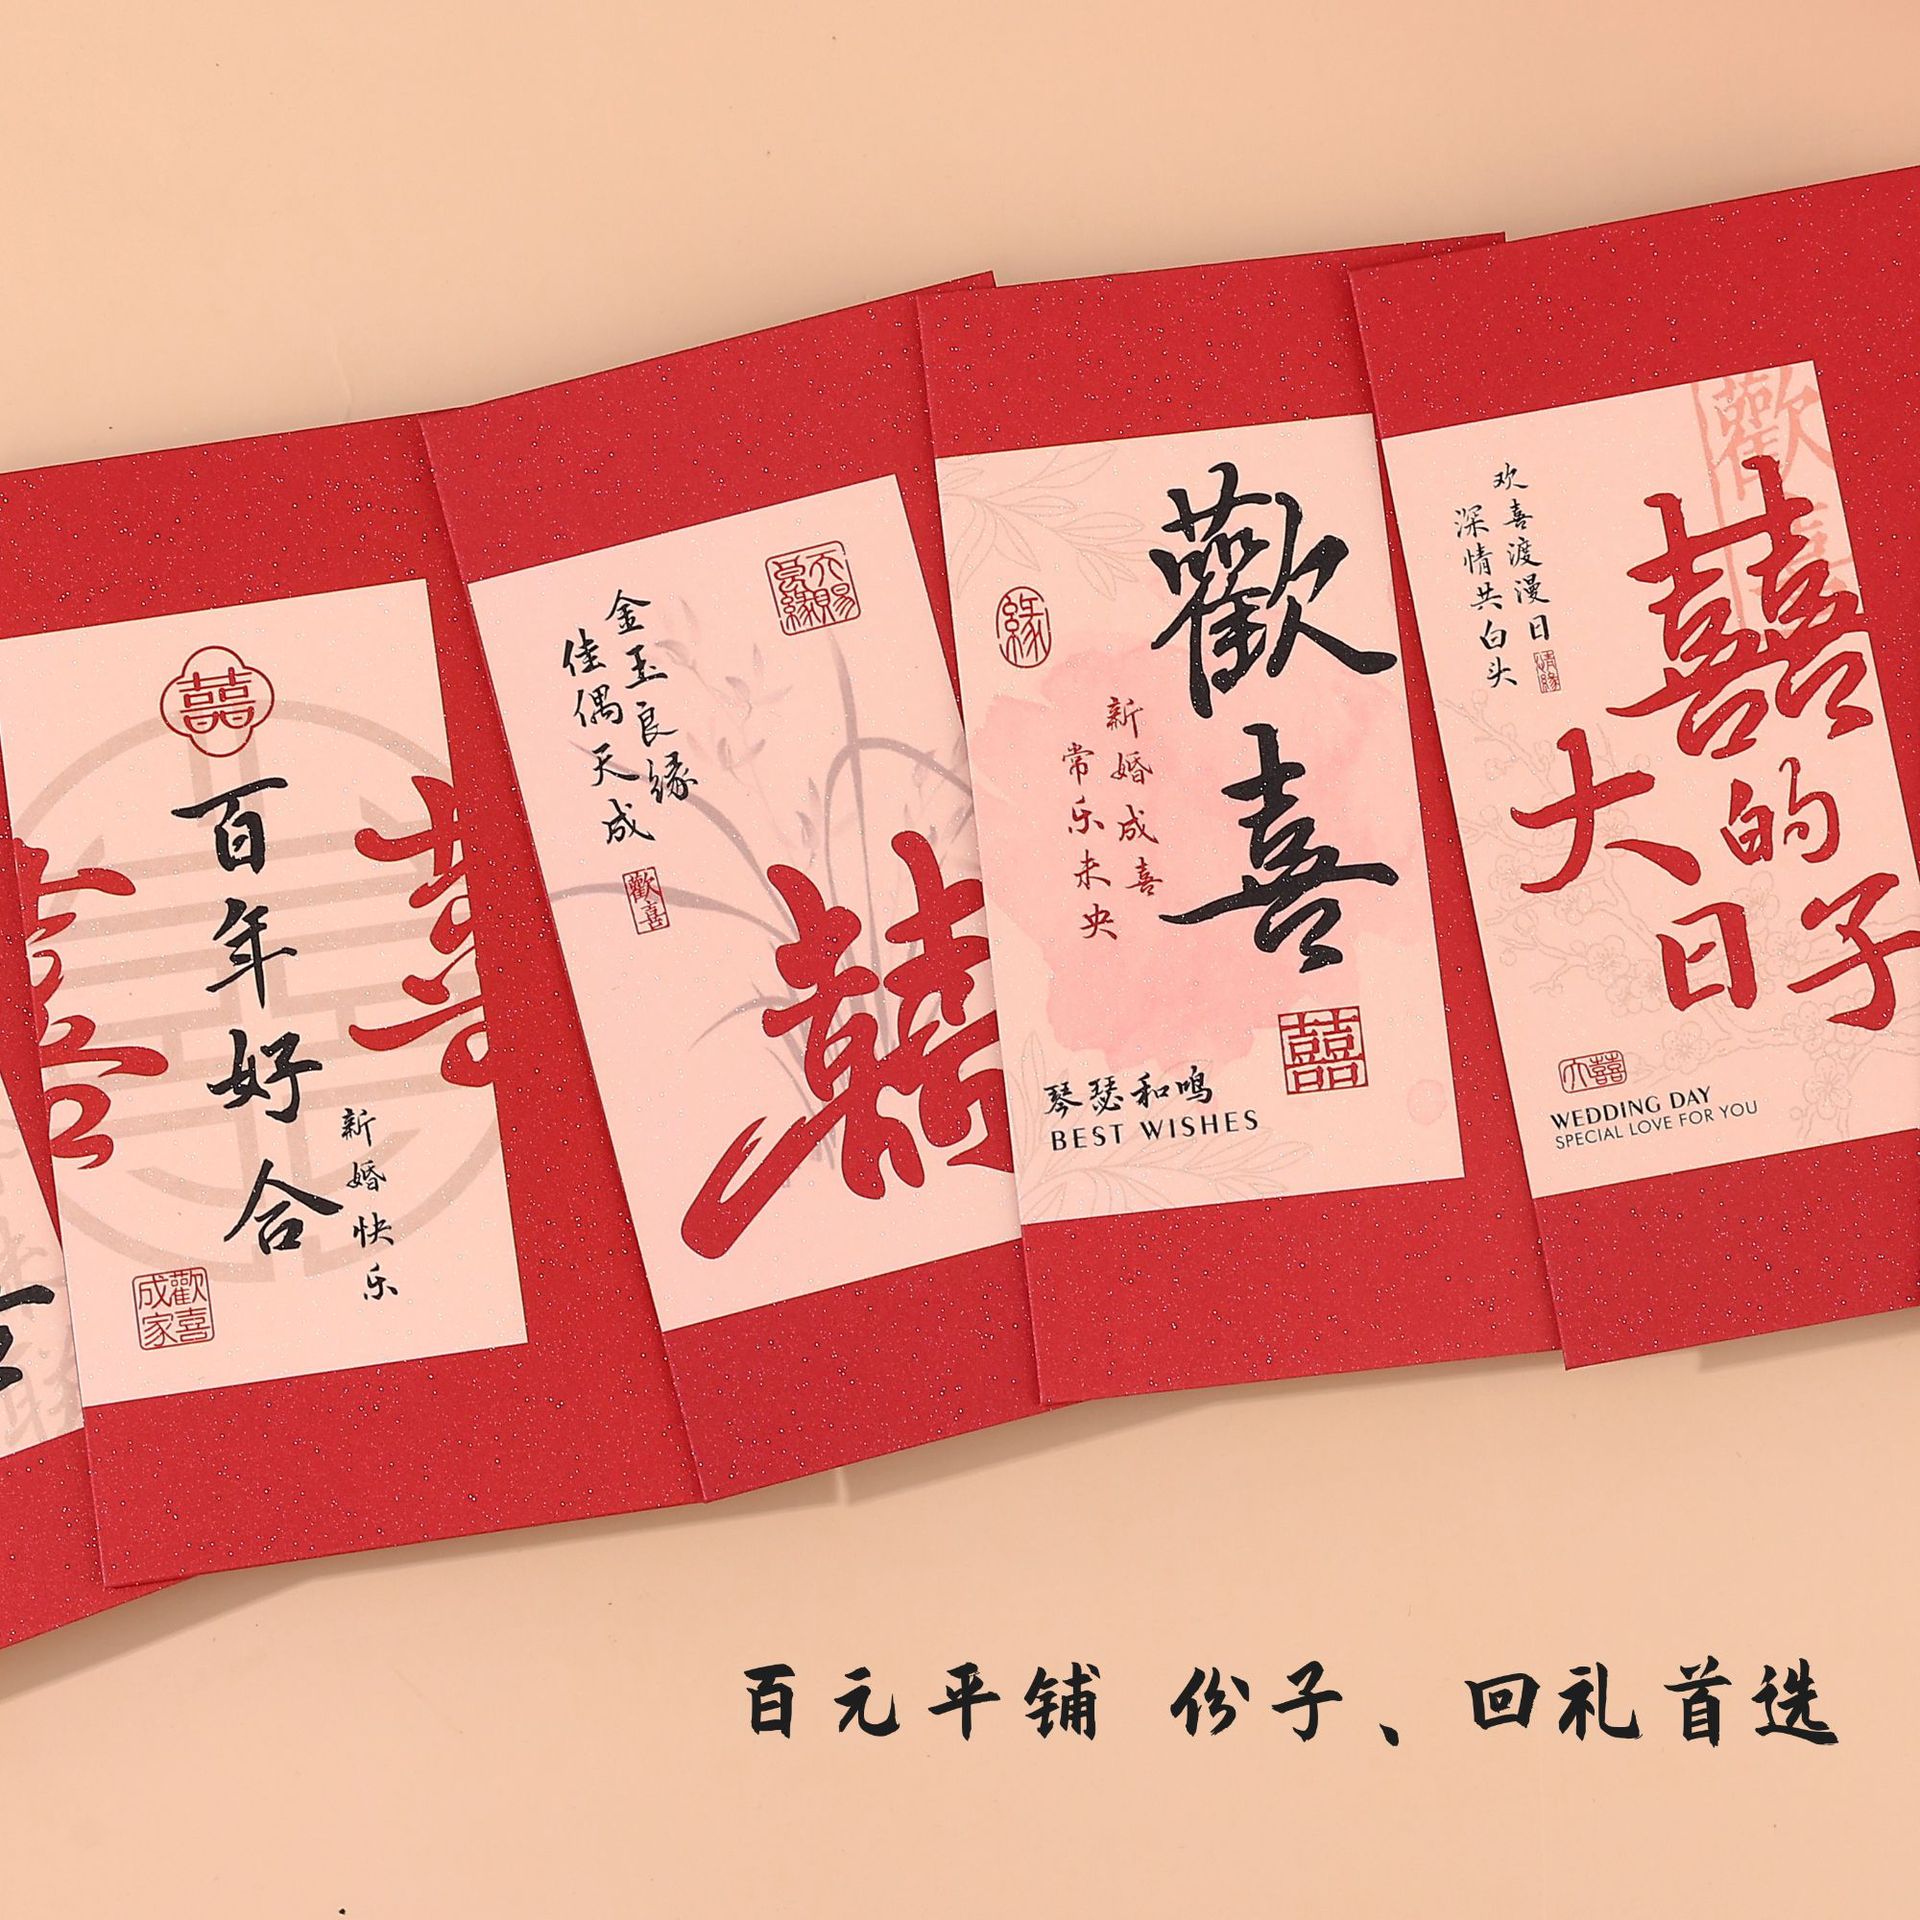 囍
百年好合
新婚快乐
歡喜
成家
天賜
良緣
金玉良缘
佳偶天成
歡喜
囍
緣
歡喜
新婚成喜
常乐未央
囍
琴瑟和鸣
BEST WISHES
歡喜
欢喜渡漫日
深情共白头
情緣
囍
大的
日子
大囍
WEDDING DAY
SPECIAL LOVE FOR YOU
百元平铺 份子、回礼首选